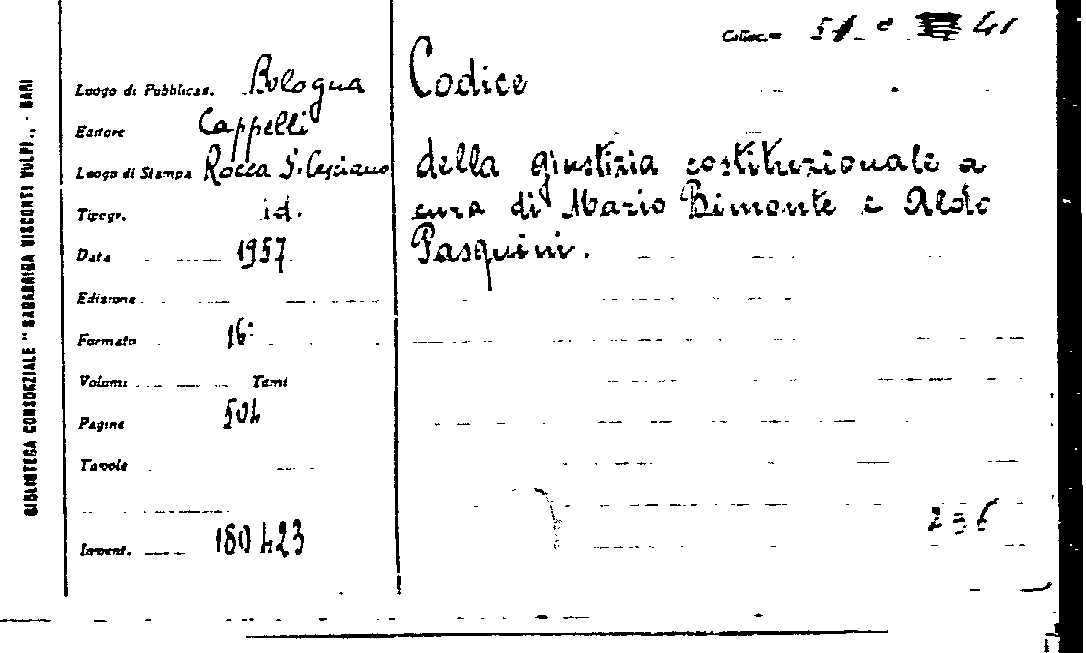 BIBLIOTECA CONSORZIALE "SAGARRIGA VISCONTI VOLPI" - BARI
Colloc.ne 51 41
Luogo di Pubblicaz. Bologna
Editore Cappelli
Luogo di Stampa Rocca S. Casciano
Tipogr. id.
Data 1957
Edizione
Formato 16°
Volumi Tomi
Pagine 504
Tavole
Invent. 180423
Codice
della giustizia costituzionale a
cura di Mario Bimonte e Aldo
Pasquini.
236